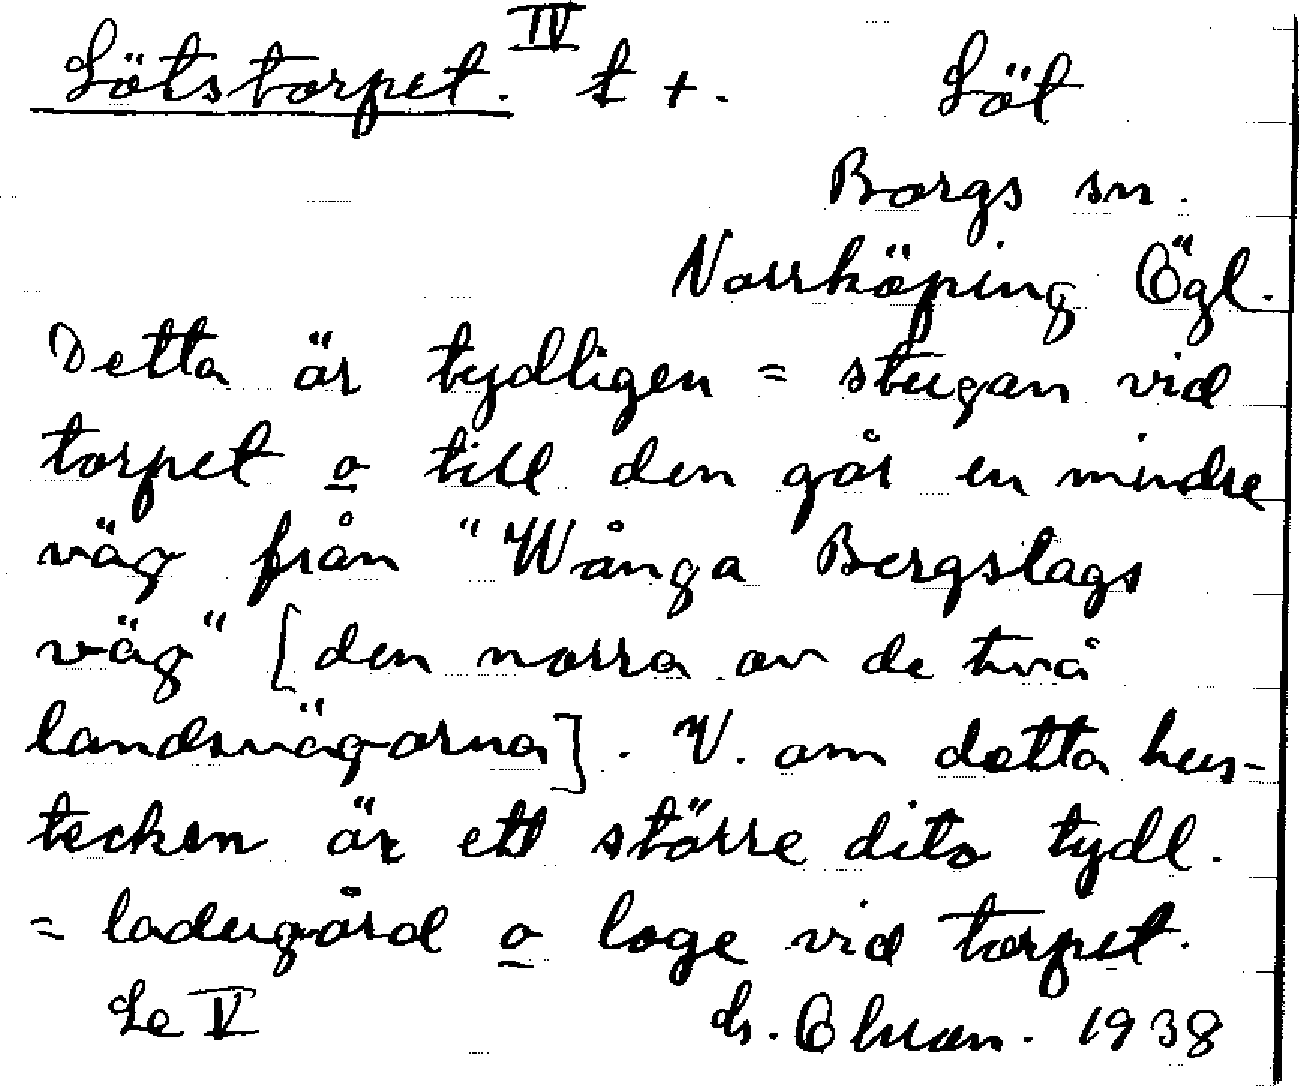 Lötstorpet. IV t +. Löt
Borgs sn.
Norrköping Ögl.
Detta är tydligen = stugan vid
torpet o till den går en mindre
väg från "Wånga Bergslags
väg" [den norra av de två
landsvägarna]. V. om detta hus-
tecken är ett större dito tydl.
= ladugård o loge vid torpet.
Se V 1938